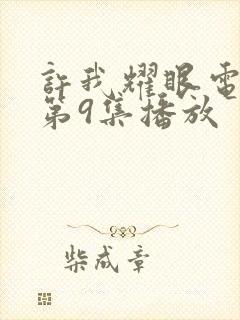 許我耀眼電
第9集播放
柴成章